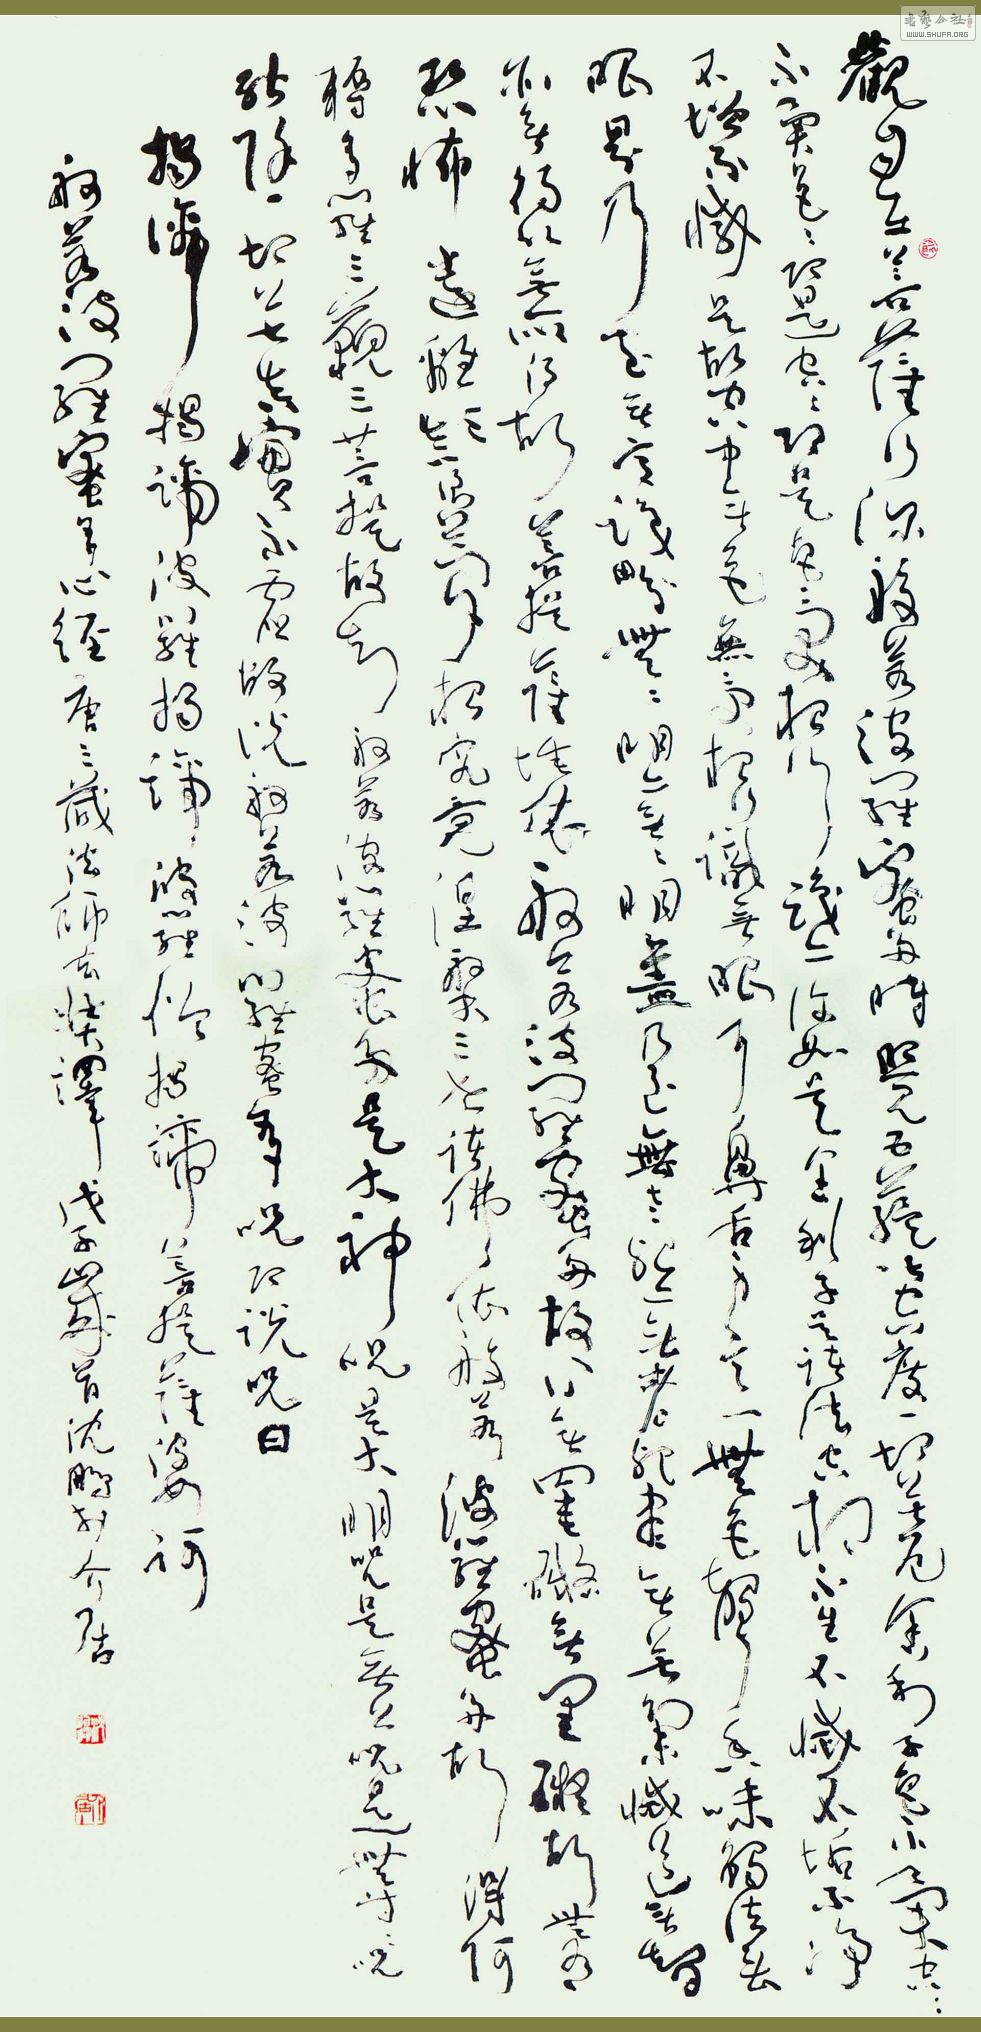 觀自在菩薩行深般若波羅蜜多時照見五蘊皆空度一切苦厄舍利子色不異空空
不異色色即是空空即是色受想行識亦復如是舍利子是諸法空相不生不滅不垢不淨
不增不減是故空中無色無受想行識無眼耳鼻舌身意無色聲香味觸法無
眼界乃至無意識界無無明亦無無明盡乃至無老死亦無老死盡無苦集滅道無智
亦無得以無所得故菩提薩埵依般若波羅蜜多故心無罣礙無罣礙故無有
恐怖遠離顛倒夢想究竟涅槃三世諸佛依般若波羅蜜多故得阿
耨多羅三藐三菩提故知般若波羅蜜多是大神咒是大明咒是無上咒是無等等咒
能除一切苦真實不虛故說般若波羅蜜多咒即說咒曰
揭諦揭諦波羅揭諦波羅僧揭諦菩提薩婆訶
般若波羅蜜多心經唐三藏法師玄奘譯戊子歲首沈鵬於介居
WWW.SHUFA.ORG